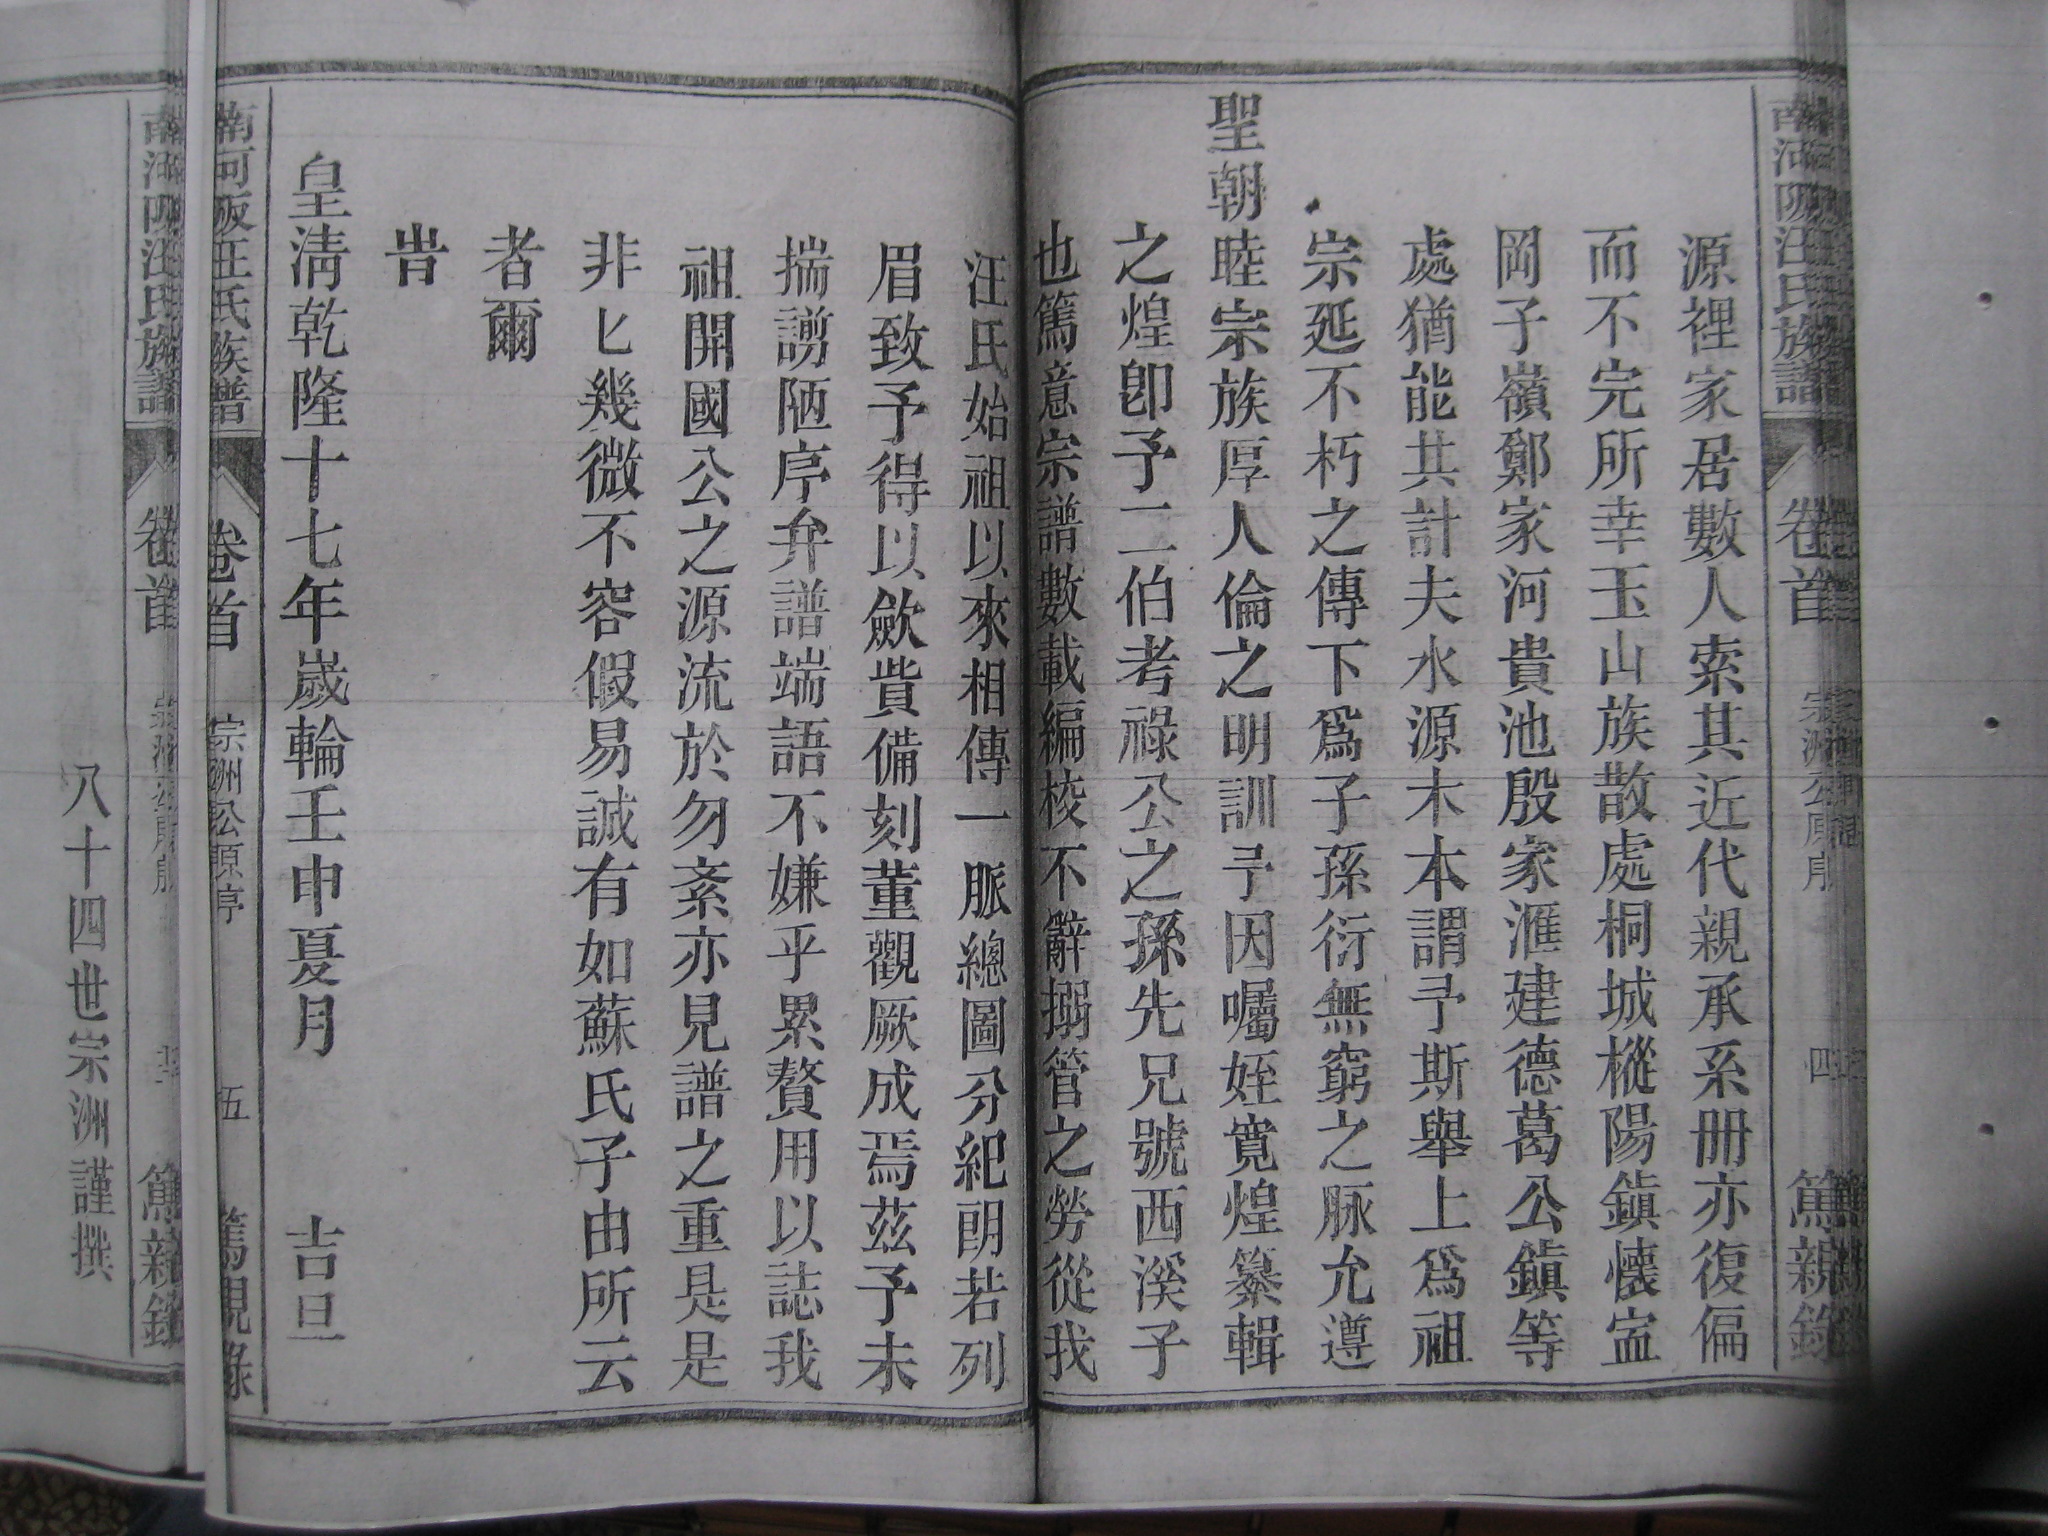 南河阪汪氏族譜 卷首 宗洲公原序 四 篤親錄
源裡家居數人索其近代親承系册亦復偏
而不完所幸玉山族散處桐城樅陽鎮懐寍
岡子嶺鄭家河貴池殷家滙建德葛公鎮等
處猶能共計夫水源木本謂予斯舉上爲祖
宗延不朽之傳下爲子孫衍無窮之脉允遵
聖朝睦宗族厚人倫之明訓予因囑姪寛煌纂輯
之煌卽予二伯考祿公之孫先兄號西溪子
也篤意宗譜數載編校不辭搦管之勞從我
汪氏始祖以來相傳一脈總圖分紀朗若列
眉致予得以斂貲備刻董觀厥成焉茲予未
揣謭陋序弁譜端語不嫌乎累贅用以誌我
祖開國公之源流於勿紊亦見譜之重是是
非匕幾微不容假易誠有如蘇氏子由所云
者爾
旹
皇淸乾隆十七年歲輪壬申夏月 吉旦
南河阪汪氏族譜 卷首 宗洲公原序 五 篤親錄
南河阪汪氏族譜 卷首 篤親錄
八十四世宗洲謹撰